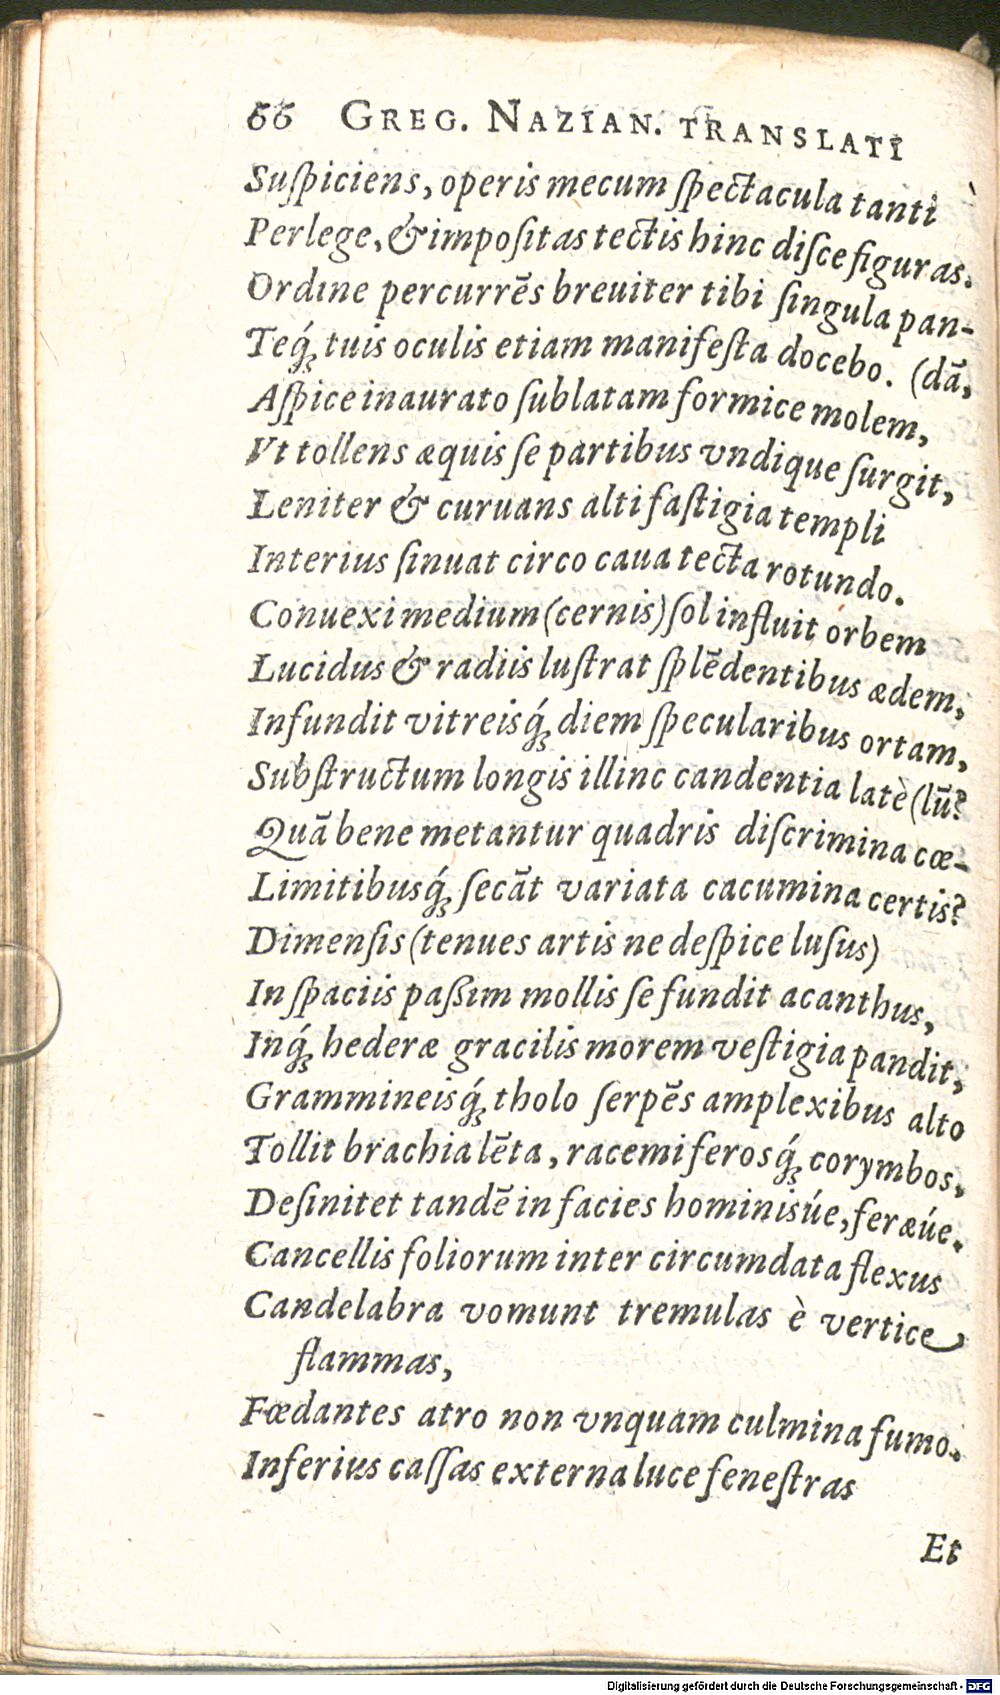 66 GREG. NAZIAN. TRANSLATI
Suſpiciens, operis mecum ſpectacula tanti
Perlege, & impoſitas tectis hinc diſce figuras.
Ordine percurrēs breuiter tibi ſingula pan-
Teq́ꝫ tuis oculis etiam manifeſta docebo. (dā,
Aſpice inaurato ſublatam formice molem,
Vt tollens æquis ſe partibus vndique ſurgit,
Leniter & curuans alti faſtigia templi
Interius ſinuat circo caua tecta rotundo.
Conuexi medium (cernis) ſol influit orbem
Lucidus & radiis luſtrat ſplēdentibus ædem,
Infundit vitreisq́ꝫ diem ſpecularibus ortam,
Subſtructum longis illinc candentia latè (lū?
Quā bene metantur quadris diſcrimina cœ-
Limitibusq́ꝫ ſecāt variata cacumina certis?
Dimenſis (tenues artis ne deſpice luſus)
In ſpaciis paßim mollis ſe fundit acanthus,
Inq́ꝫ hederæ gracilis morem veſtigia pandit,
Grammineisq́ꝫ tholo ſerpēs amplexibus alto
Tollit brachia lēta, racemiferosq́ꝫ corymbos,
Deſinitet tandē in facies hominisúe, feræúe.
Cancellis foliorum inter circumdata flexus
Candelabra vomunt tremulas è vertice
flammas,
Fœdantes atro non vnquam culmina fumo.
Inferius caſſas externa luce feneſtras
Et
Digitalisierung gefördert durch die Deutsche Forschungsgemeinschaft - DFG